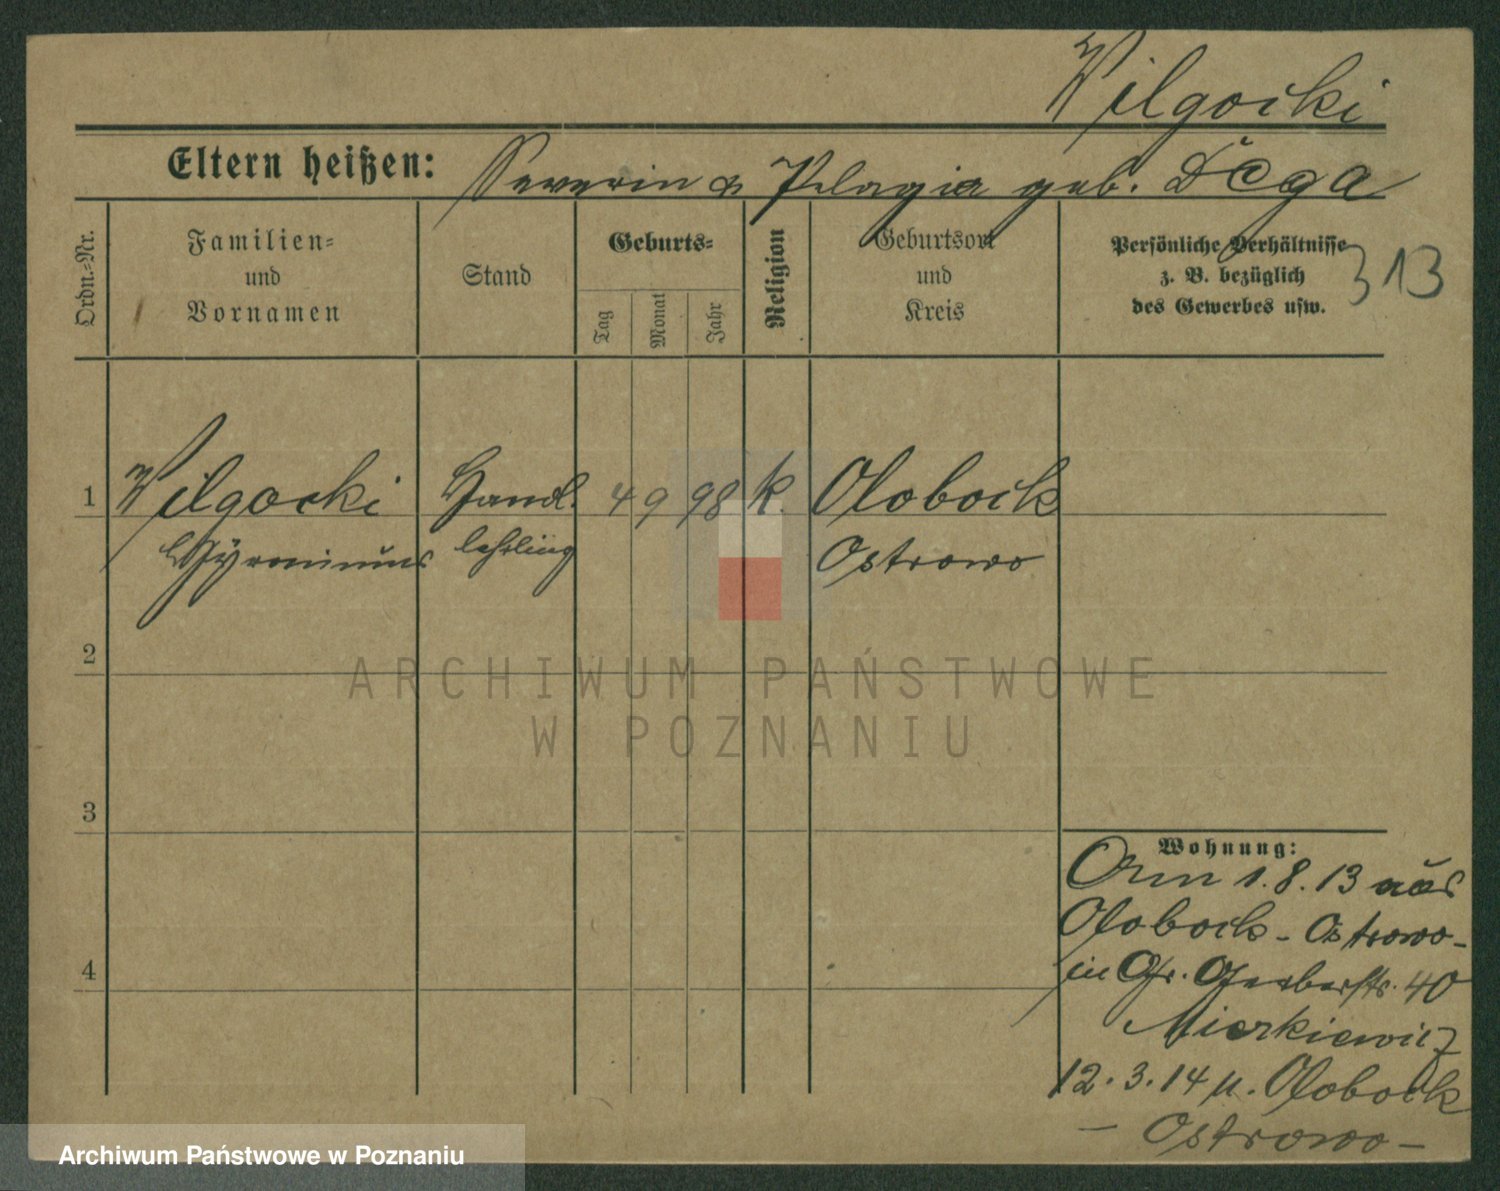 Wilgocki
Eltern heißen: Severin & Pelagia geb. Dega
Ordn.=Nr.
Familien=
und
Vornamen
Stand
Geburts=
Tag
Monat
Jahr
Religion
Geburtsort
und
Kreis
Persönliche Verhältnisse
z. B. bezüglich
des Gewerbes usw.
313
1 Wilgocki Handl. 4 9 98 k. Olobock
lehrling Ostrowo
2
3
4
Wohnung:
1.8.13 aus
Olobock - Ostrowo -
in Gr. Gerberstr. 40
Mierkiewicz
12.3.14 n. Olobock
- Ostrowo -
ARCHIWUM PAŃSTWOWE
W POZNANIU
Archiwum Państwowe w Poznaniu